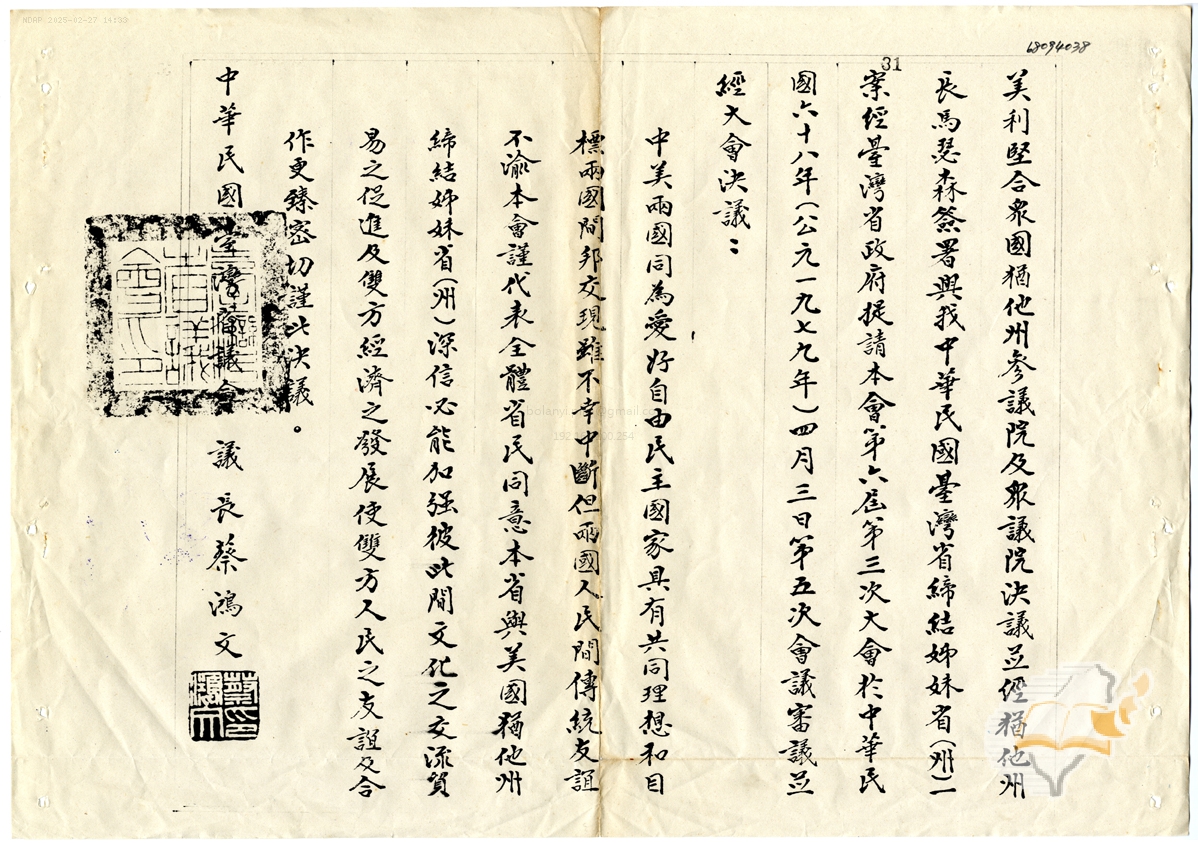 NDAP 2025-02-27 14:33
68094038
31
美利堅合衆國猶他州參議院及衆議院決議並經猶他州
長馬瑟森簽署與我中華民國臺灣省締結姊妹省(州)一
案經臺灣省政府提請本會第六屆第三次大會於中華民
國六十八年(公元一九七九年)四月三日第五次會議審議並
經大會決議:
中美兩國同為愛好自由民主國家具有共同理想和目
標兩國間邦交現雖不幸中斷但兩國人民間傳統友誼
不渝本會謹代表全體省民同意本省與美國猶他州
締結姊妹省(州)深信必能加强彼此間文化之交流貿
易之促進及雙方經濟之發展使雙方人民之友誼及合
作更臻密切謹此決議。
中華民國臺灣省議會 議長蔡鴻文